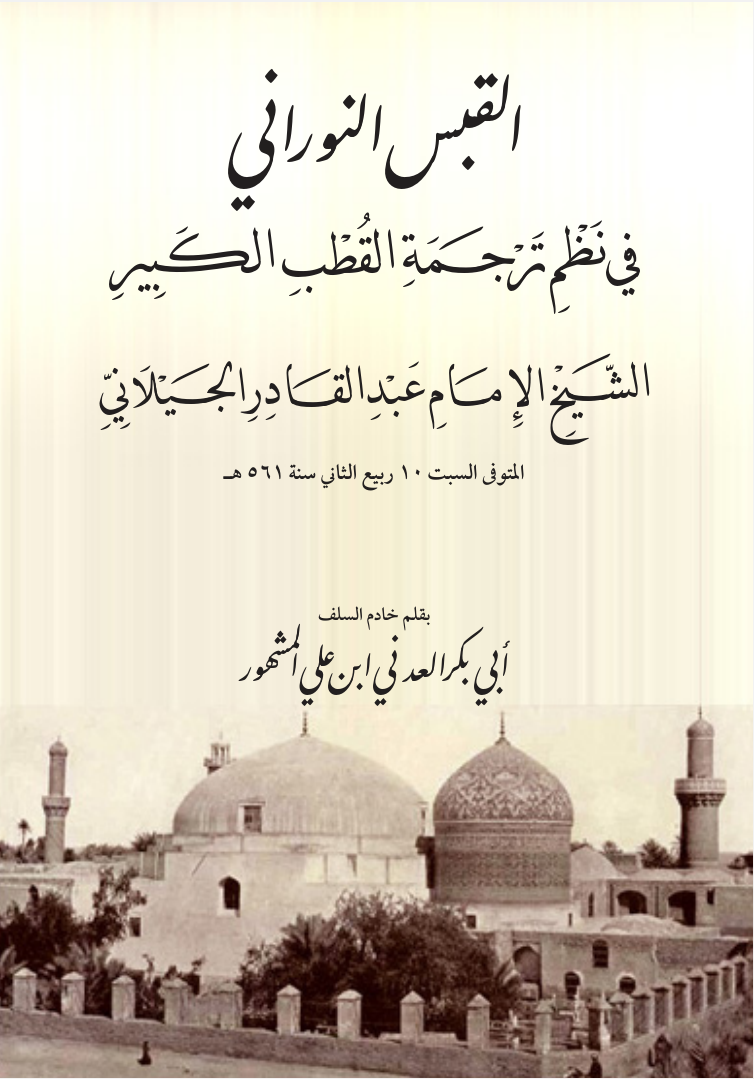 القبس النوراني
في نَظْمِ تَرْجَمَةِ القُطْبِ الكَبِيرِ
الشَّيْخِ الإِمَامِ عَبْدِ القَادِرِ الجَيْلَانِيِّ
المتوفى السبت ١٠ ربيع الثاني سنة ٥٦١ هـ
بقلم خادم السلف
أبي بكر العدني ابن علي المشهور